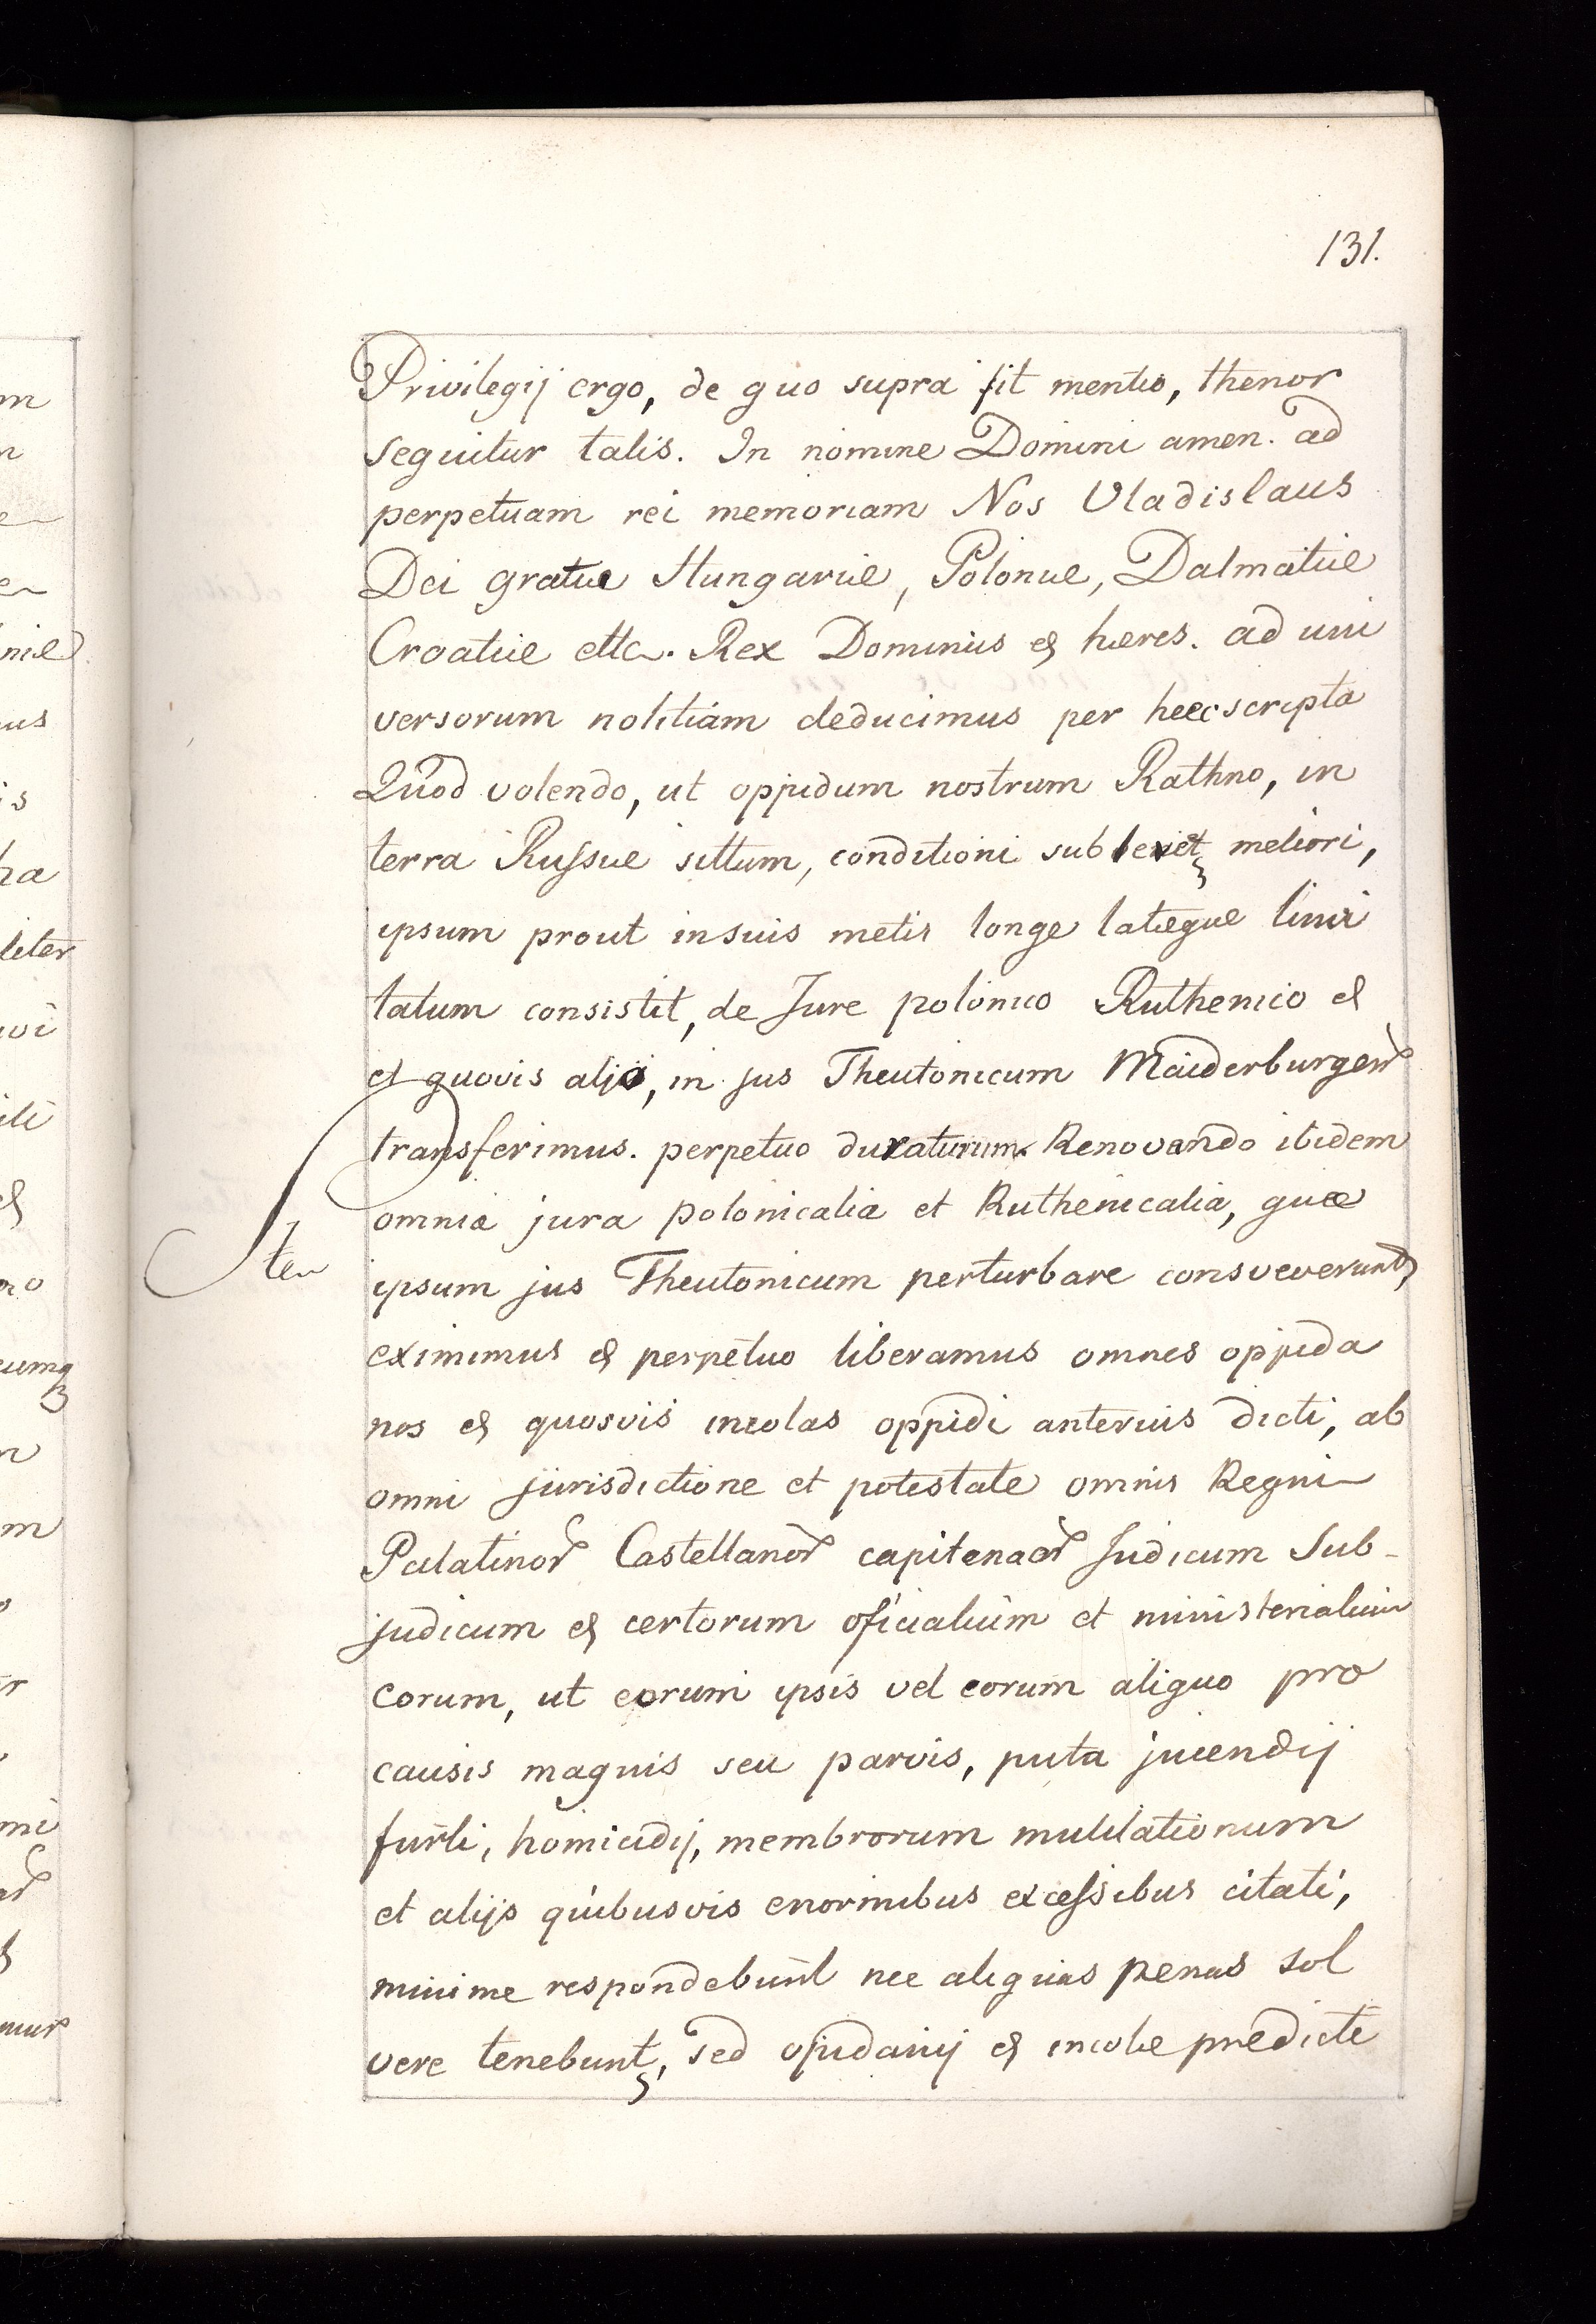 131.
Privilegij ergo, de quo supra fit mentio, thenor
sequitur talis. In nomine Domini amen. ad
perpetuam rei memoriam Nos Vladislaus
Dei gratiæ Hungariæ, Poloniæ, Dalmatiæ
Croatiæ ettc. Rex Dominus et hæres. ad uni
versorum notitiam deducimus per heec scripta
Quod volendo, ut oppidum nostrum Rathno, in
terra Russiæ sittum, conditioni sublevet meliori,
ipsum prout in suis metis longe lateque limi
tatum consistit, de Jure polonico Ruthenico et
et quovis aljo, in jus Theutonicum Maiderburgen
transferimus. perpetuo duraturum. Renovando ibidem
omnia jura polonicalia et Ruthenicalia, quæ
ten ipsum jus Theutonicum perturbare consveverunt,
eximimus et perpetuo liberamus omnes oppida
nos et quosvis incolas oppidi anterius dicti, ab
omni jurisdictione et potestate omnis Regni
Palatinor Castellanor capitenaor Judicum Sub-
judicum et certorum oficialium et ministerialium
eorum, ut eorum ipsis vel eorum aliquo pro
causis magnis seu parvis, puta jncendij
furti, homicidij, membrorum mutilationum
et alijs quibusvis enormibus excessibus citati,
minime respondebunt nec aliquas penas sol
vere tenebunt, sed opidanij et incolæ predicte